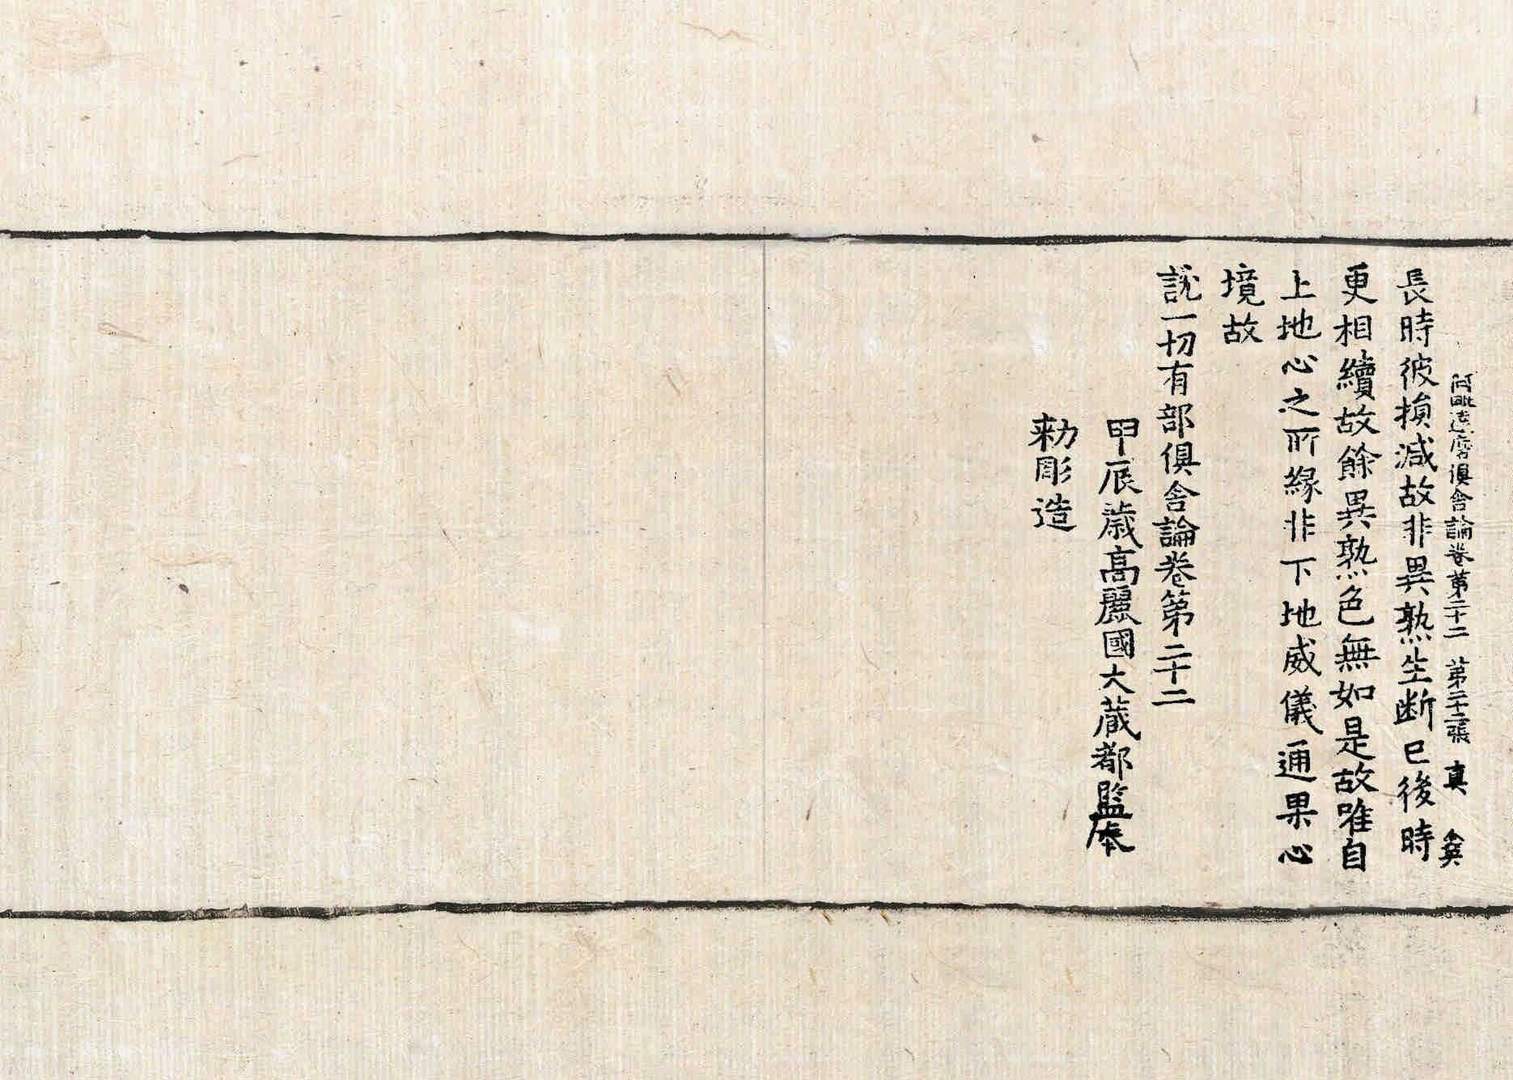 阿毗達磨俱舍論卷第二十二 第二十三張 真
長時彼損減故非異熟生断已後時
更相續故餘異熟色無如是故唯自
上地心之所緣非下地威儀通果心
境故
說一切有部俱舍論卷第二十二
甲辰歳高麗國大藏都監奉
勑彫造